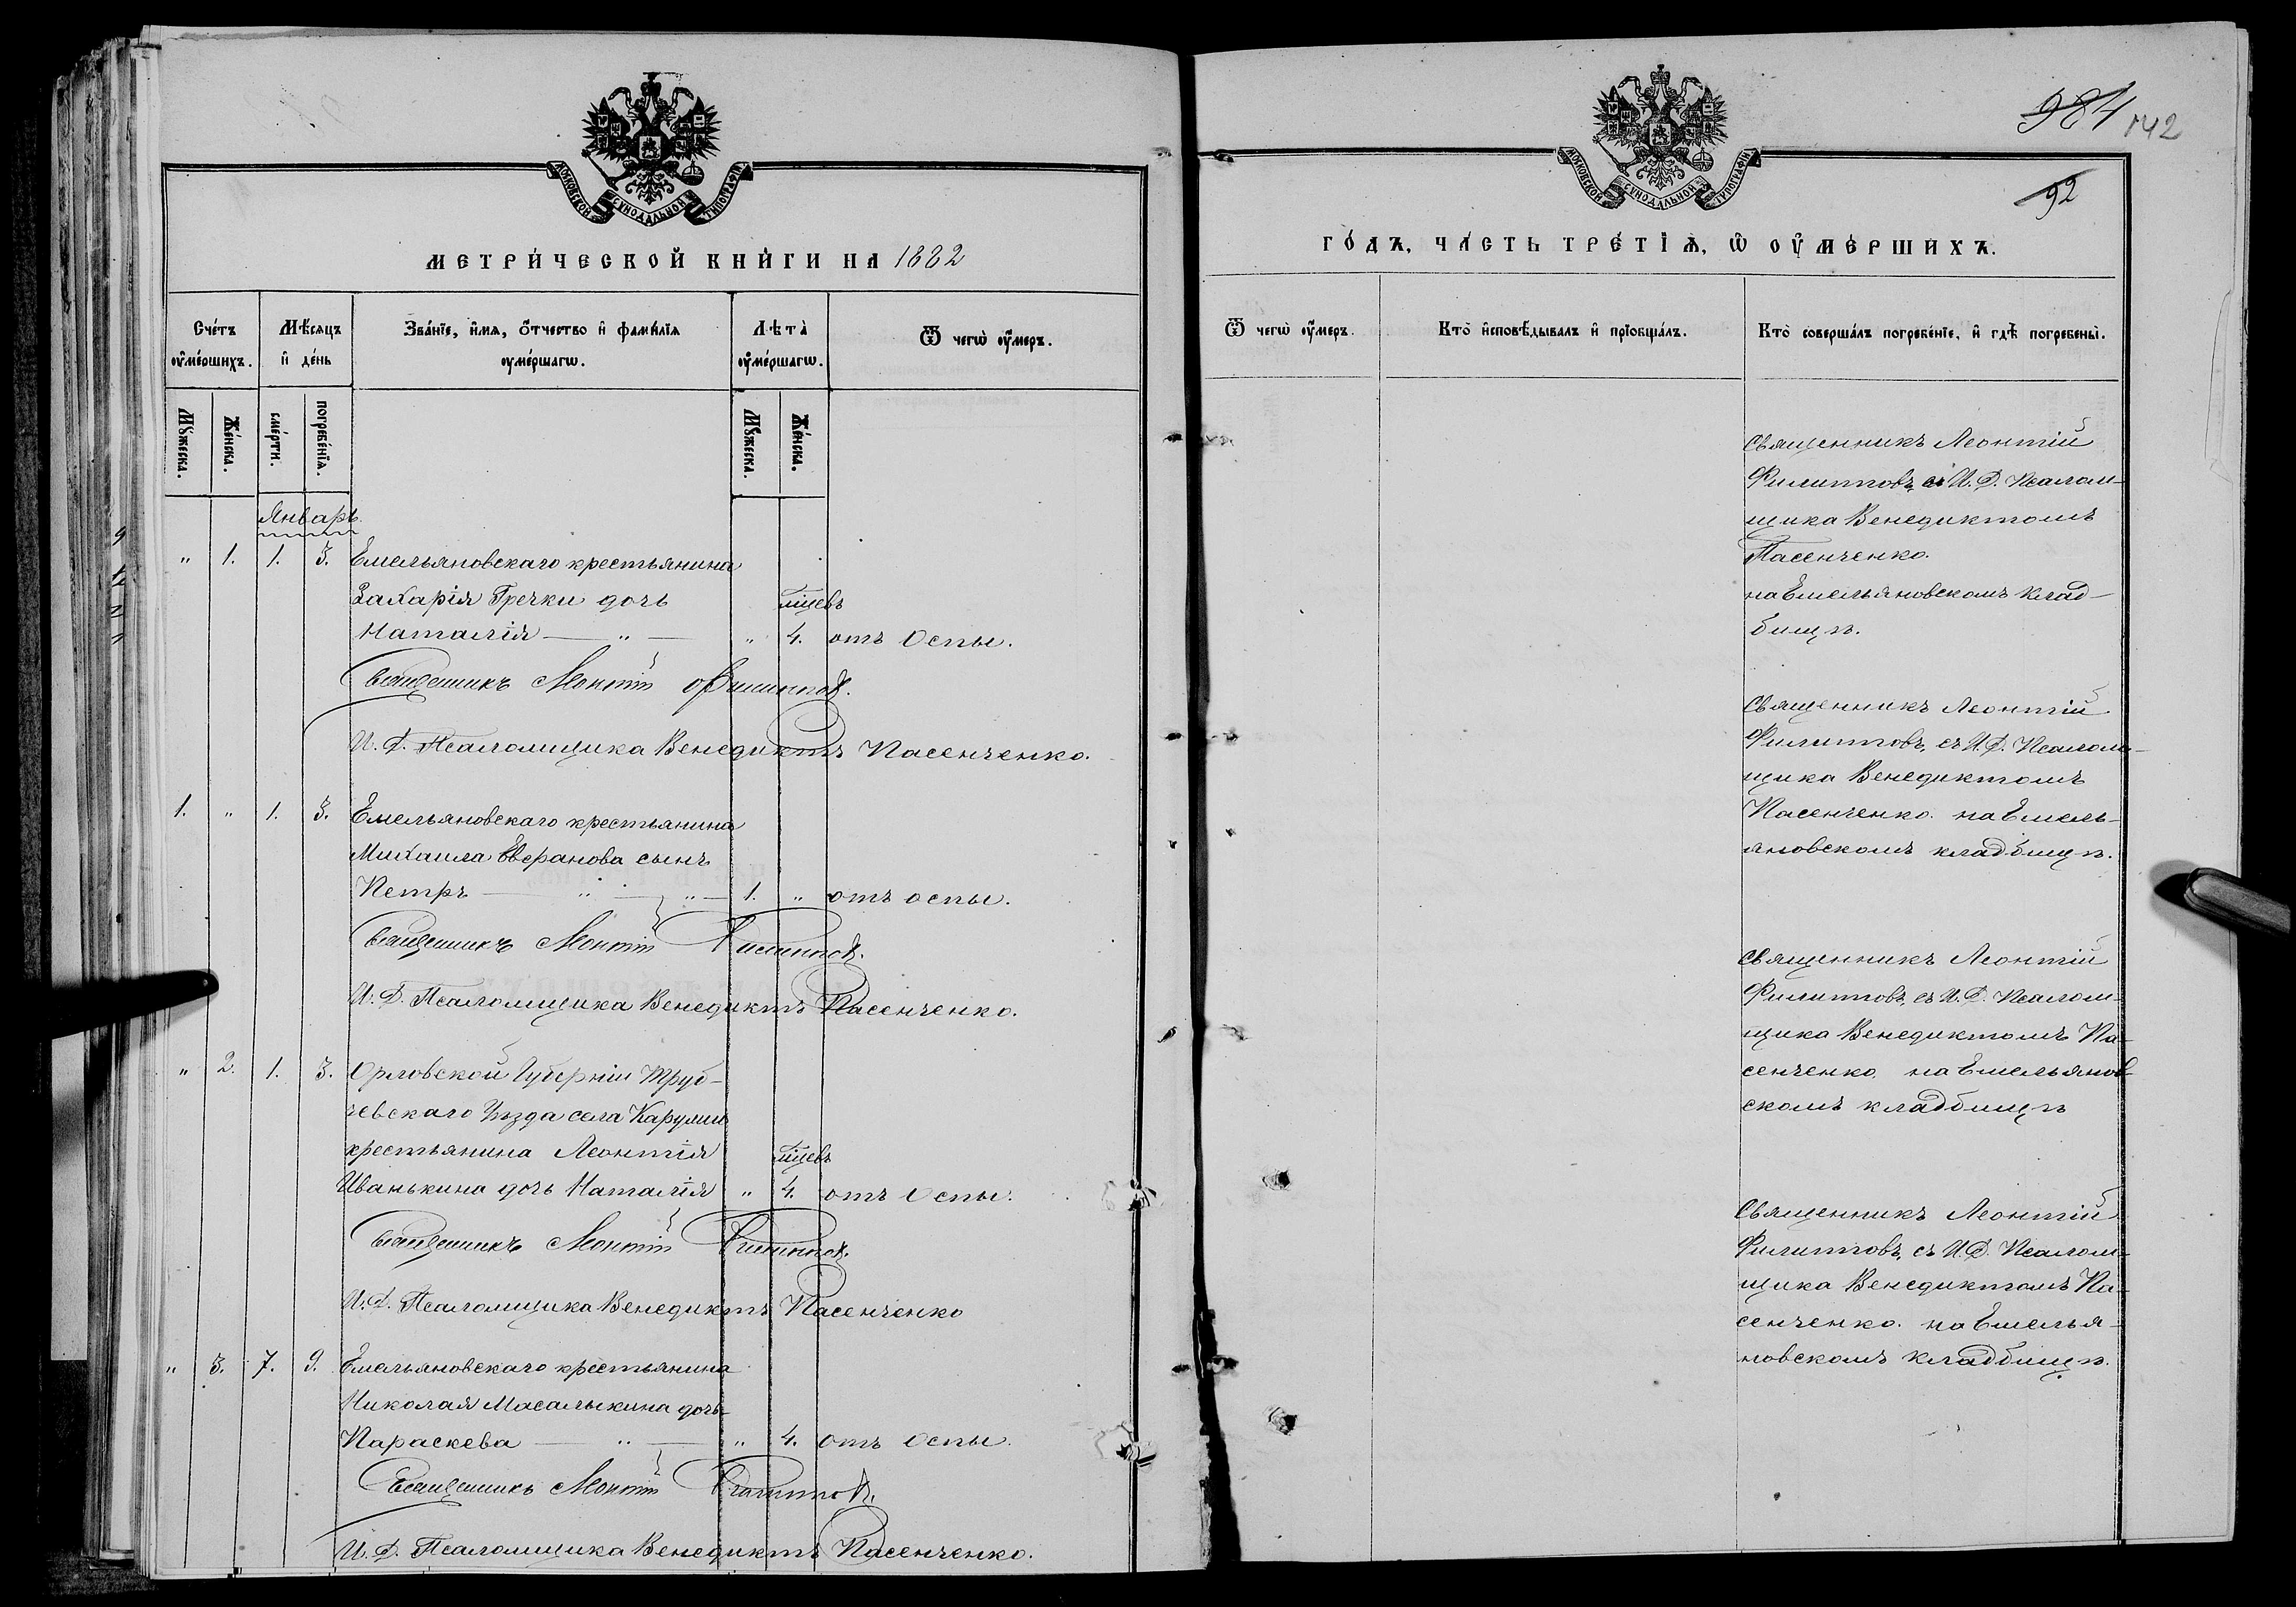 МОСКОВСКОЙ СѴНОДАЛЬНОЙ ТИПОГРАФІИ
МЕТРИЧЕСКОЙ КНИГИ НА 1882
Счетъ оумершихъ.
Мѣсяцъ и день
Званіе, имя, отчество и фамилія оумершагѡ.
Лѣта оумершагѡ.
Ѿ чегѡ оумеръ.
Мꙋжеска.
Женска.
смерти.
погребенія.
Мꙋжеска.
Женска.
Январь.
„ 1. 1. 3. Емельяновскаго крестьянина
Захарія Гречки дочь мѣцевъ
Наталія — „ — „ 4. отъ Оспы.
Священникъ Леонтій Филиппов.
И. Д. Псаломщика Венедиктъ Пасенченко.
1. „ 1. 3. Емельяновскаго крестьянина
Михаила сынъ
Петръ — „ — „ — 1. „ отъ оспы.
Священникъ Леонтій Филиппов.
И. Д. Псаломщика Венедиктъ Пасенченко.
„ 2. 1. 3. Орловской Губерніи Труб-
чевскаго Уѣзда села
крестьянина Леонтія мѣцевъ
Иванькина дочь Наталія „ 4. отъ Оспы.
Священникъ Леонтій Филиппов.
И. Д. Псаломщика Венедиктъ Пасенченко
„ 3. 7. 9. Емельяновскаго крестьянина
Николая Масалыкина дочь
Параскева — „ — „ 4. отъ Оспы.
Священникъ Леонтій Филиппов.
И. Д. Псаломщика Венедиктъ Пасенченко.
984 142
92
МОСКОВСКОЙ СѴНОДАЛЬНОЙ ТИПОГРАФІИ
ГОДЪ, ЧАСТЬ ТРЕТІѦ, Ѡ ОУМЕРШИХЪ.
Ѿ чегѡ оумеръ.
Кто исповѣдывалъ и пріобщалъ.
Кто совершалъ погребеніе, и гдѣ погребены.
Священникъ Леонтій
Филипповъ, съ И. Д. Псалом-
щика Венедиктомъ
Пасенченко.
на Емельяновскомъ клад-
бищѣ.
Священникъ Леонтій
Филипповъ, съ И. Д. Псалом-
щика Венедиктомъ
Пасенченко. на Емель-
яновскомъ кладбищѣ.
Священникъ Леонтій
Филипповъ, съ И. Д. Псалом-
щика Венедиктомъ Па-
сенченко. на Емельянов-
скомъ кладбищѣ
Священникъ Леонтій
Филипповъ, съ И. Д. Псалом-
щика Венедиктомъ Па-
сенченко. на Емелья-
новскомъ кладбищѣ.